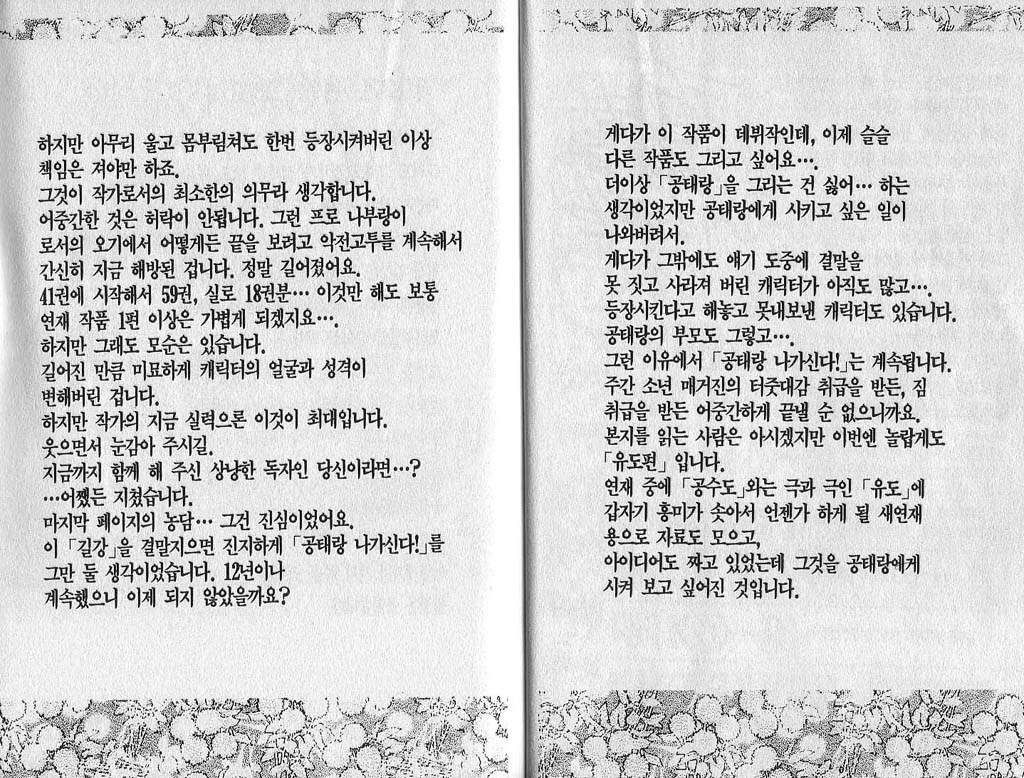 하지만 아무리 울고 몸부림쳐도 한번 등장시켜버린 이상
책임은 져야만 하죠.
그것이 작가로서의 최소한의 의무라 생각합니다.
어중간한 것은 허락이 안됩니다. 그런 프로 나부랑이
로서의 오기에서 어떻게든 끝을 보려고 악전고투를 계속해서
간신히 지금 해방된 겁니다. 정말 길어졌어요.
41권에 시작해서 59권, 실로 18권분… 이것만 해도 보통
연재 작품 1편 이상은 가볍게 되겠지요….
하지만 그래도 모순은 있습니다.
길어진 만큼 미묘하게 캐릭터의 얼굴과 성격이
변해버린 겁니다.
하지만 작가의 지금 실력으론 이것이 최대입니다.
웃으면서 눈감아 주시길.
지금까지 함께 해 주신 상냥한 독자인 당신이라면…?
…어쨌든 지쳤습니다.
마지막 페이지의 농담… 그건 진심이었어요.
이 「길강」을 결말지으면 진지하게 「공태랑 나가신다!」를
그만 둘 생각이었습니다. 12년이나
계속했으니 이제 되지 않았을까요?
게다가 이 작품이 데뷔작인데, 이제 슬슬
다른 작품도 그리고 싶어요….
더이상 「공태랑」을 그리는 건 싫어… 하는
생각이었지만 공태랑에게 시키고 싶은 일이
나와버려서.
게다가 그밖에도 얘기 도중에 결말을
못 짓고 사라져 버린 캐릭터가 아직도 많고….
등장시킨다고 해놓고 못내보낸 캐릭터도 있습니다.
공태랑의 부모도 그렇고….
그런 이유에서 「공태랑 나가신다!」는 계속됩니다.
주간 소년 매거진의 터줏대감 취급을 받든, 짐
취급을 받든 어중간하게 끝낼 순 없으니까요.
본지를 읽는 사람은 아시겠지만 이번엔 놀랍게도
「유도편」 입니다.
연재 중에 「공수도」와는 극과 극인 「유도」에
갑자기 흥미가 솟아서 언젠가 하게 될 새연재
용으로 자료도 모으고,
아이디어도 짜고 있었는데 그것을 공태랑에게
시켜 보고 싶어진 것입니다.